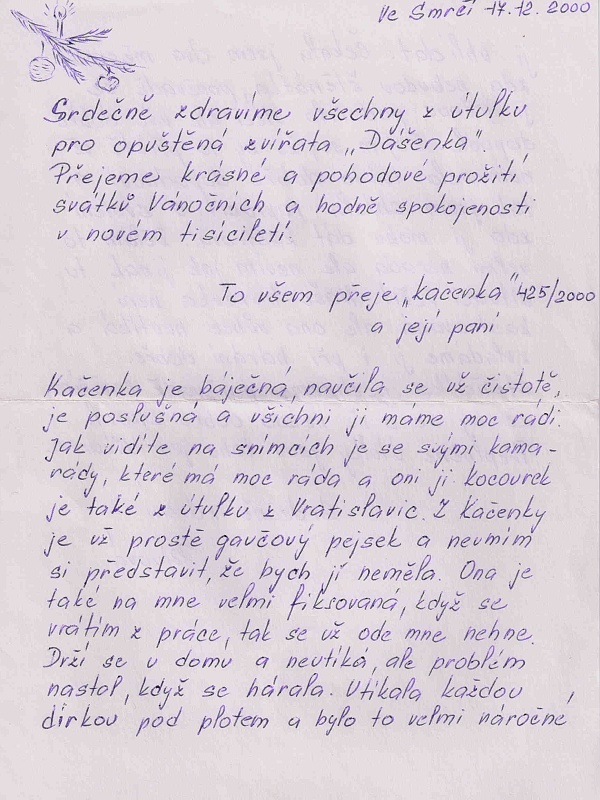 Ve Smrčí 17.12.2000
Srdečně zdravíme všechny z útulku
pro opuštěná zvířata „Dášenka“
Přejeme krásné a pohodové prožití
svátků Vánočních a hodně spokojenosti
v novém tisíciletí.
To všem přeje „kačenka“ 425/2000
a její paní
Kačenka je báječná, naučila se už čistotě,
je poslušná a všichni ji máme moc rádi.
Jak vidíte na snímcích je se svými kama-
rády, které má moc ráda a oni ji kocourek
je také z útulku z Vratislavic. Z Kačenky
je už prostě gaučový pejsek a neumím
si představit, že bych jí neměla. Ona je
také na mne velmi fiksovaná, když se
vrátím z práce, tak se už ode mne nehne.
Drží se u domu a neutíká, ale problém
nastal, když se hárala. Utíkala každou
dírkou pod plotem a bylo to velmi náročné,